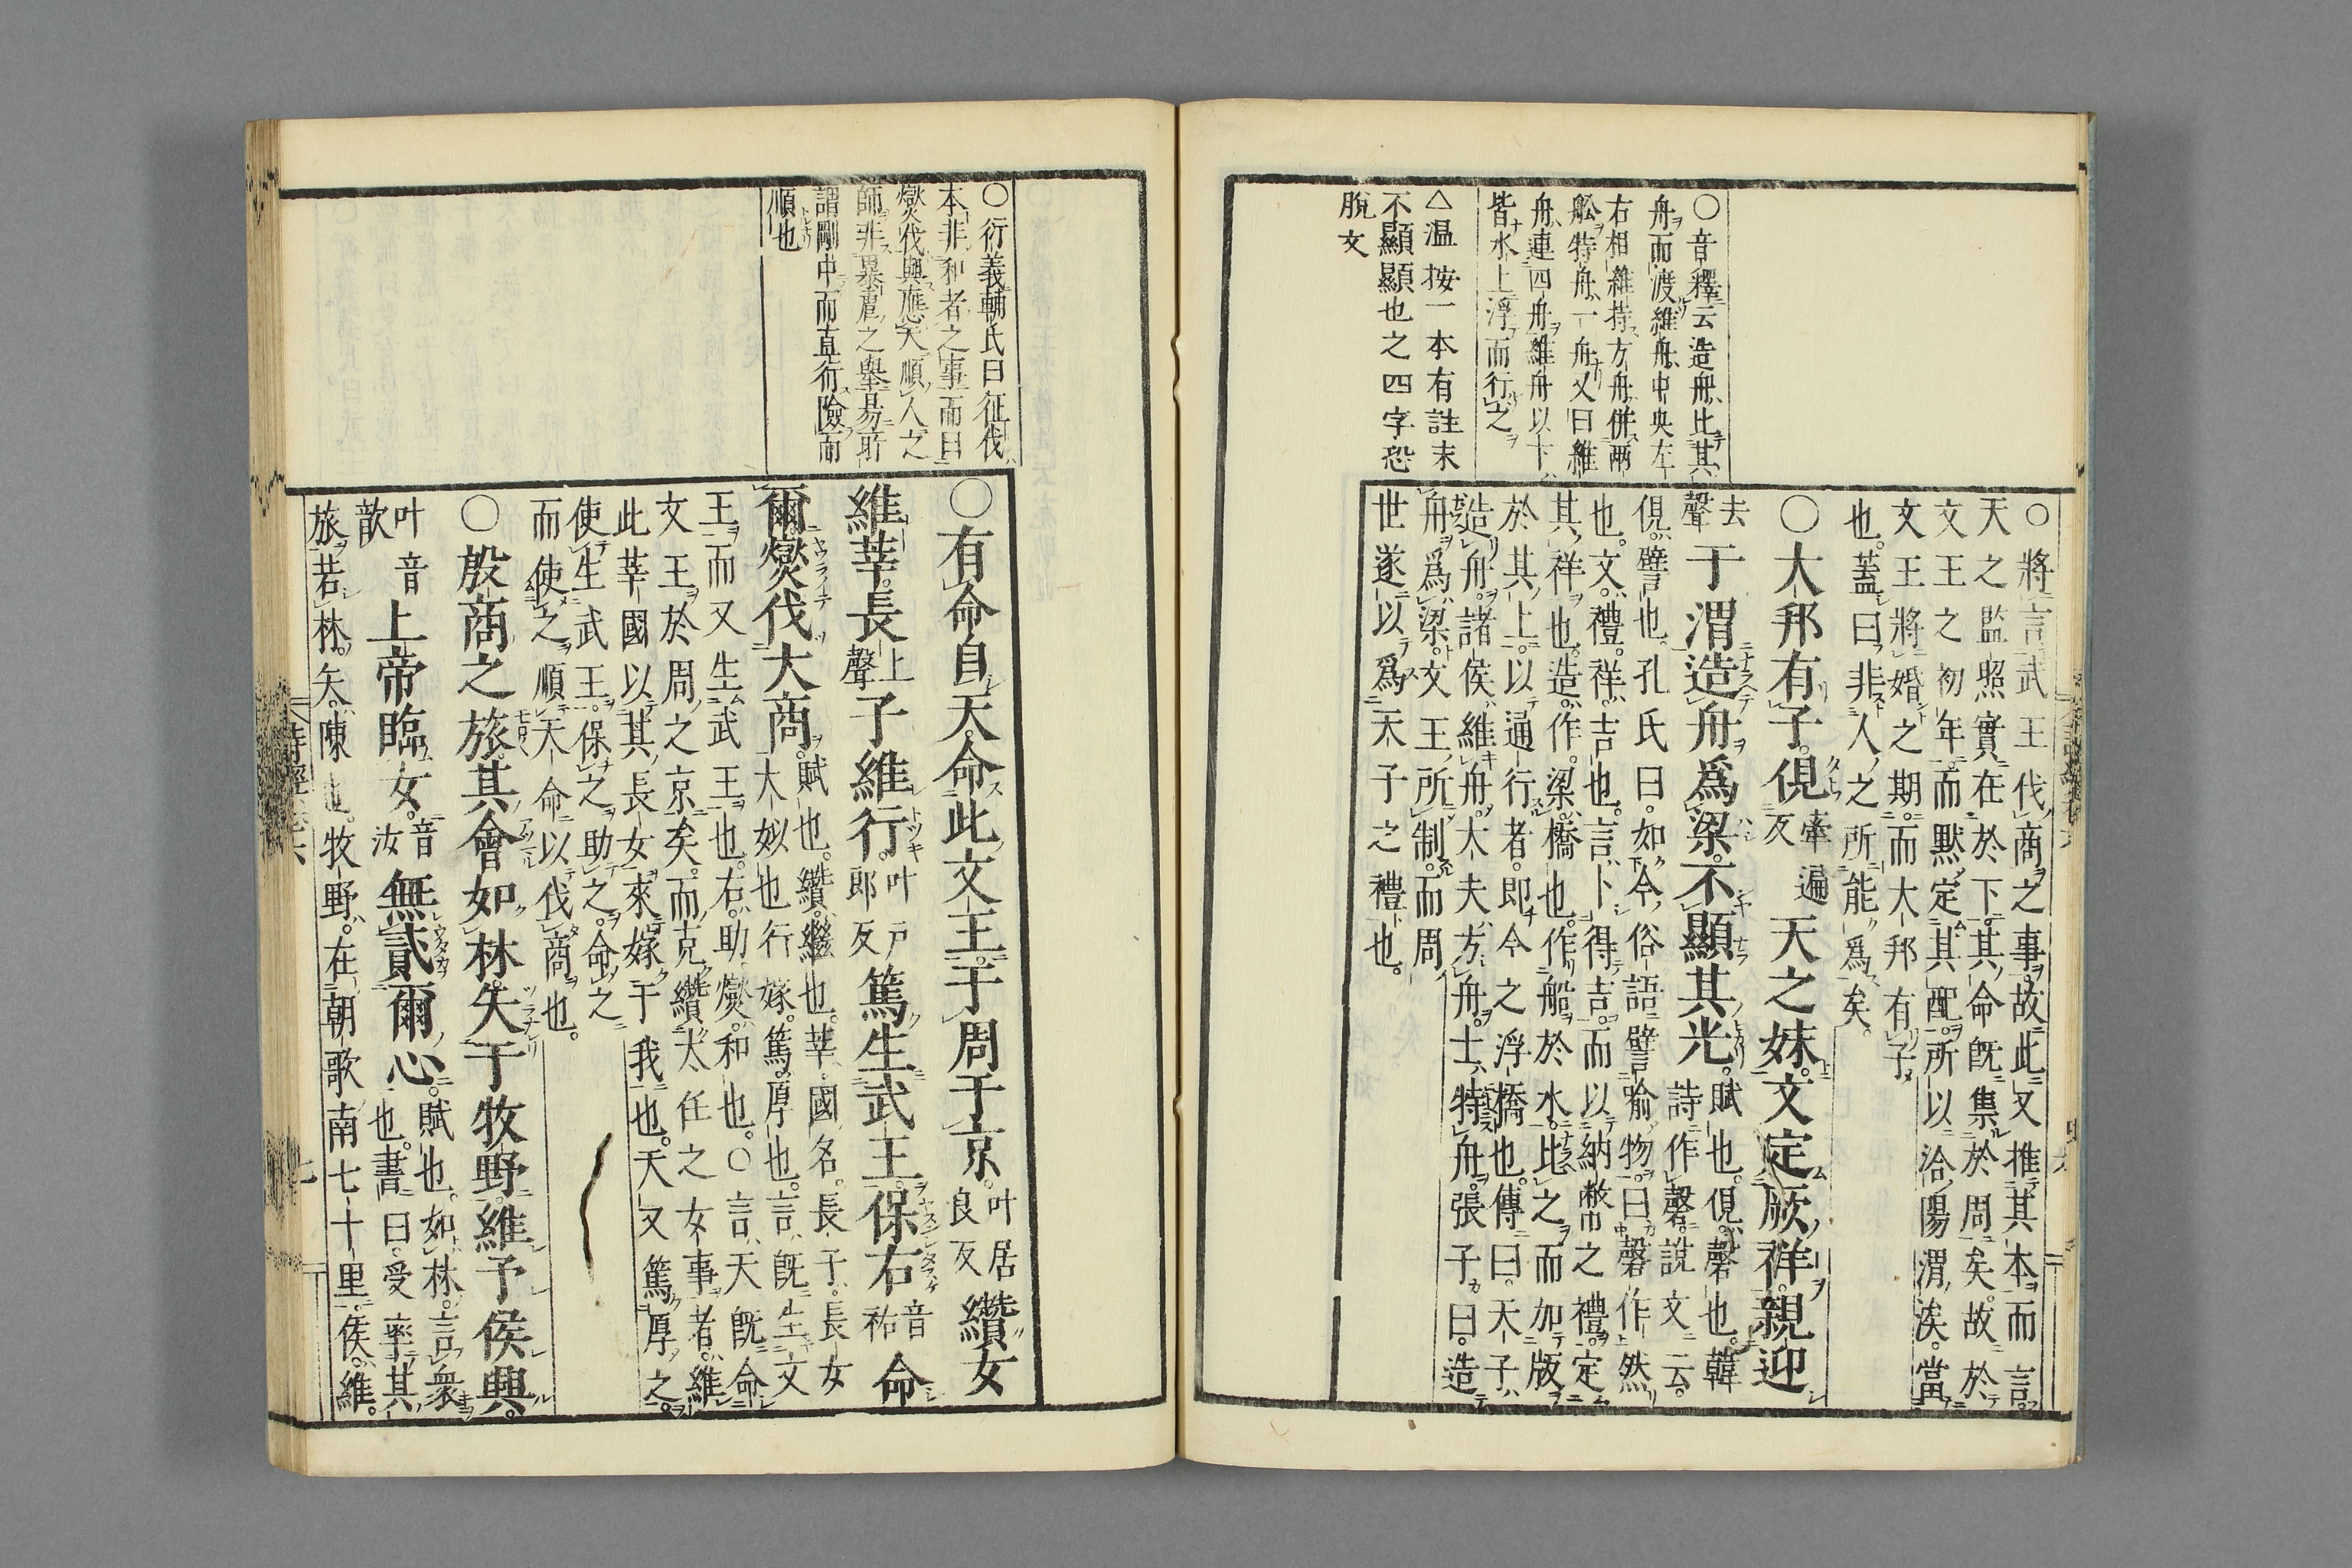 ○音釋云造舟比其
舟而渡維舟中央左
右相維持方舟併兩
舩特舟一舟又曰維
舟連四舟維舟以下
皆水上浮而行之
△温按一本有註末
不顯顯也之四字恐
脫文
○將言武王伐商之事故此又推其本而言
天之監照實在於下其命旣集於周矣故於
文王之初年而默定其配所以洽陽渭涘當
文王將婚之期而大邦有子
也蓋曰非人之所能爲矣
○大邦有子俔牽遍反天之妹文定厥祥親迎
去聲于渭造舟爲梁不顯其光賦也俔磬也韓詩作磬說文云
俔譬也孔氏曰如今俗語譬喻物曰磬作然
也文禮祥吉也言卜得吉而以納幣之禮定
其祥也造作梁橋也作船於水比之而加版
於其上以通行者即今之浮橋也傳曰天子
造舟諸侯維舟大夫方舟士特舟張子曰造
舟爲梁文王所制而周
世遂以爲天子之禮也
○衍義輔氏曰征伐
本非和者之事而曰
燮伐與應天順人之
師非暴虐之舉易所
謂剛中而直行險而
順也
○有命自天命此文王于周于京叶居良反纘女
維莘長上聲子維行叶戸郎反篤生武王保右音祐命
爾燮伐大商賦也纘繼也莘國名長子長女大姒也行嫁篤厚也言旣生文
王而又生武王也右助燮和也○言天旣命
文王於周之京矣而克纘大任之女事者維
此莘國以其長女來嫁于我也天又篤厚之
使生武王保之助之命之
而使之順天命以伐商也
○殷商之旅其會如林矢于牧野維予侯興
叶音歆上帝臨女音汝無貳爾心賦也如林言衆也書曰受率其
旅若林矢陳也牧野在朝歌南七十里侯維
詩經
七